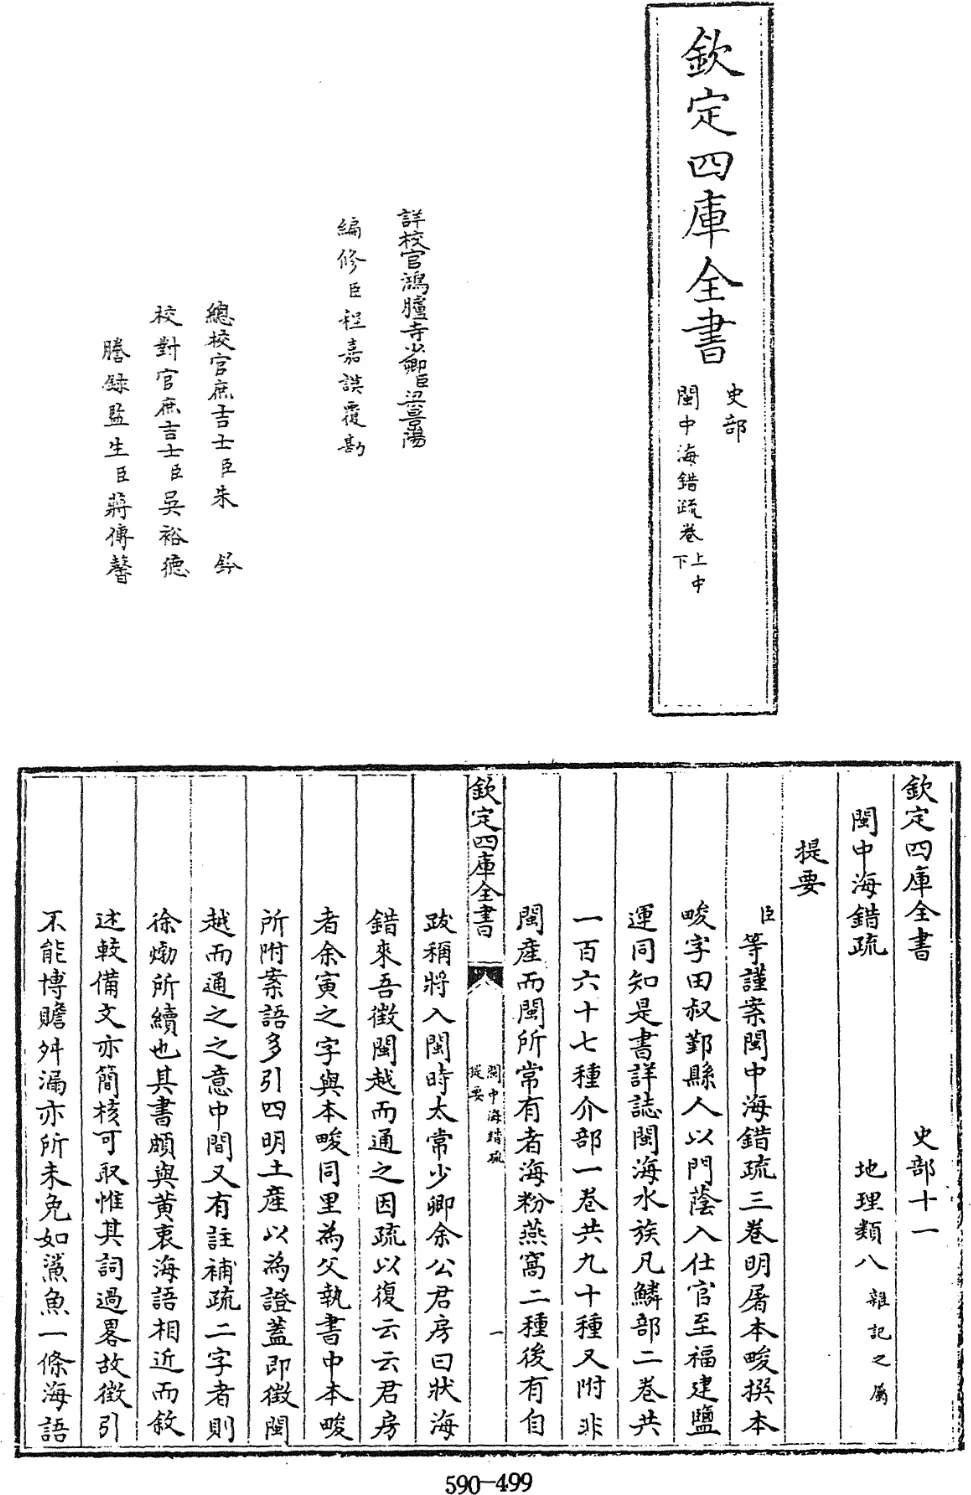 欽定四庫全書
史部
閩中海錯疏卷上中下
詳校官鴻臚寺少卿臣梁景陽
編修臣程嘉謨覆勘
總校官庶吉士臣朱鈐
校對官庶吉士臣吳裕德
謄錄監生臣蔣傳馨
欽定四庫全書 史部十一
閩中海錯疏 地理類八雜記之屬
提要
臣等謹案閩中海錯疏三卷明屠本畯撰本
畯字田叔鄞縣人以門蔭入仕官至福建鹽
運同知是書詳誌閩海水族凡鱗部二卷共
一百六十七種介部一卷共九十種又附非
閩產而閩所常有者海粉燕窩二種後有自
欽定四庫全書 閩中海錯疏提要 一
跋稱將入閩時太常少卿余公君房曰狀海
錯來吾徵閩越而通之因疏以復云云君房
者余寅之字與本畯同里為父執書中本畯
所附案語多引四明土產以為證蓋即徵閩
越而通之之意中間又有註補疏二字者則
徐𤊹所續也其書頗與黃衷海語相近而敘
述較備文亦簡核可取惟其詞過畧故徵引
不能博贍舛漏亦所未免如鯊魚一條海語
590-499